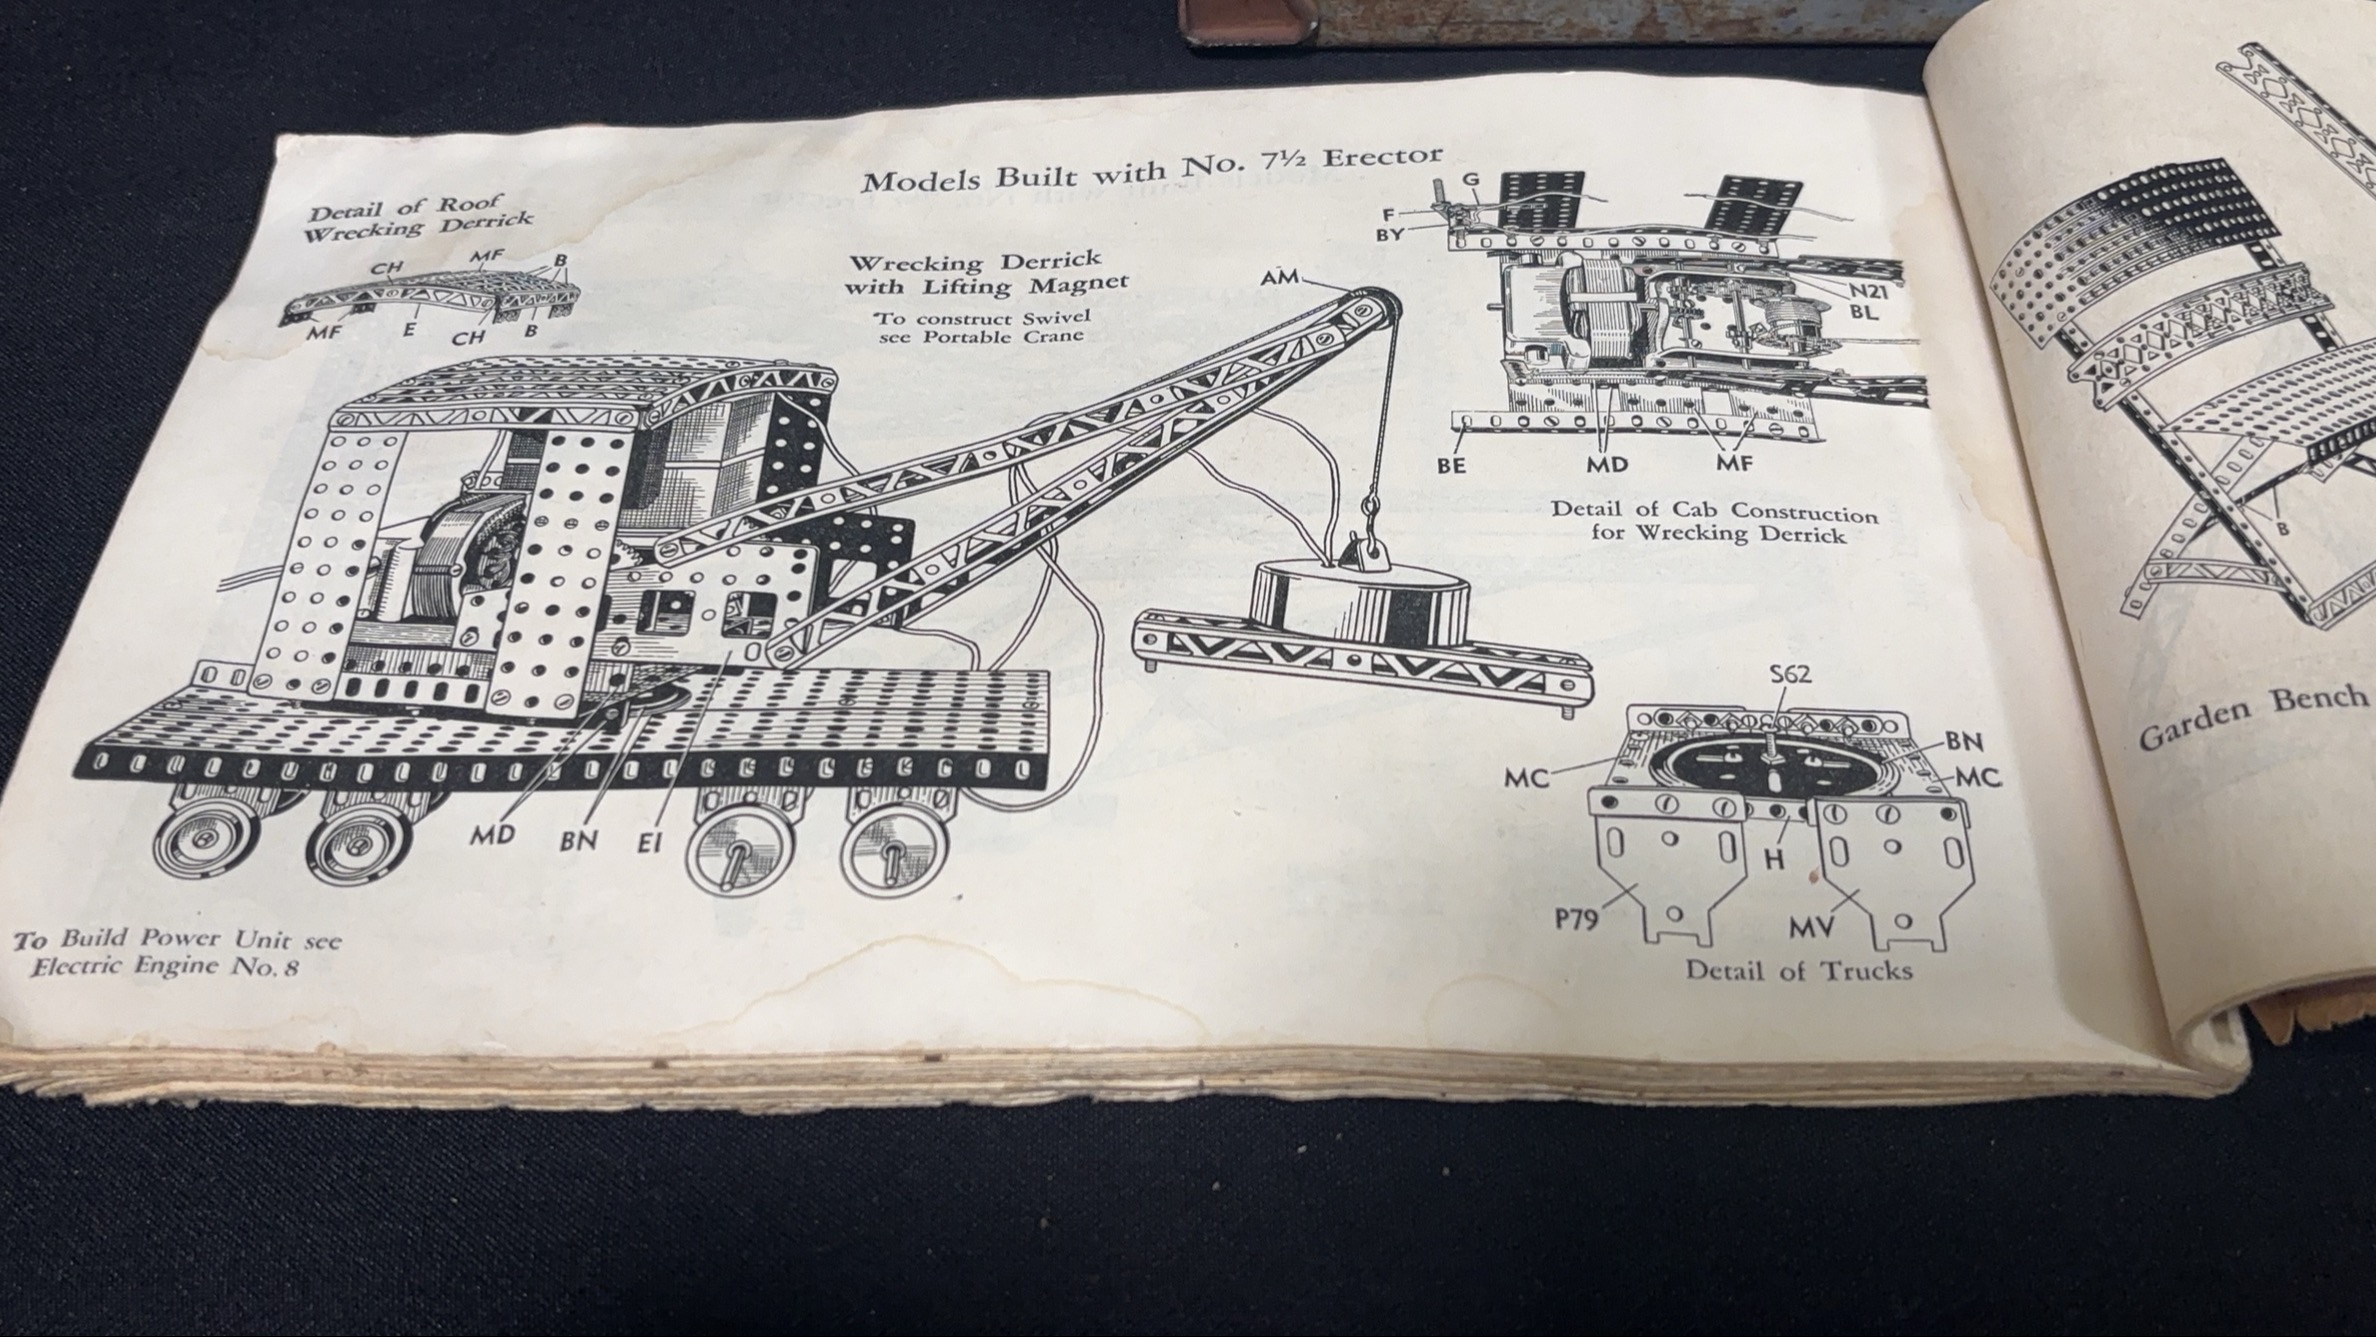 Models Built with No. 7½ Erector
Detail of Roof
Wrecking Derrick
CH
MF
B
MF
E
CH
B
Wrecking Derrick
with Lifting Magnet
To construct Swivel
see Portable Crane
AM
G
F
BY
N21
BL
BE
MD
MF
Detail of Cab Construction
for Wrecking Derrick
MD
BN
EI
S62
MC
BN
MC
H
P79
MV
Detail of Trucks
To Build Power Unit see
Electric Engine No. 8
B
Garden Bench